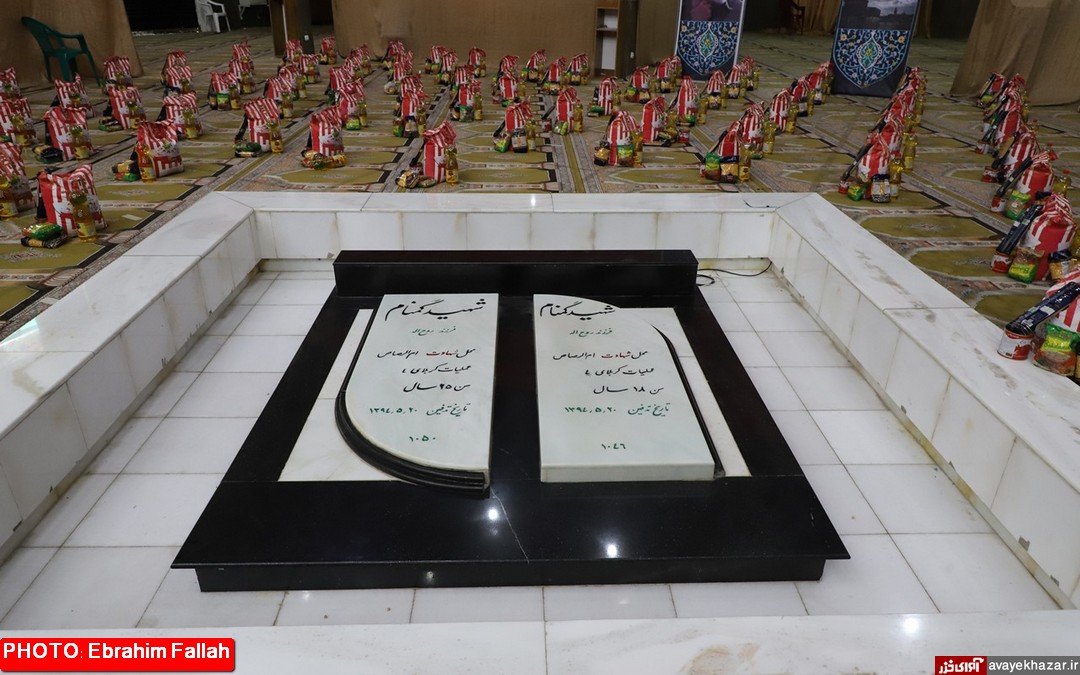 شهید گمنام
فرزند روح اله
محل شهادت ام الرصاص
عملیات کربلای ۴
سن ۱۸ سال
تاریخ تدفین ۱۳۹۴٫۵٫۲۰
۱۰۴۶
شهید گمنام
فرزند روح اله
محل شهادت ام الرصاص
عملیات کربلای ۴
سن ۲۵ سال
تاریخ تدفین ۱۳۹۴٫۵٫۲۰
۱۰۵۰
PHOTO: Ebrahim Fallah
آوای خزر avayekhazar.ir